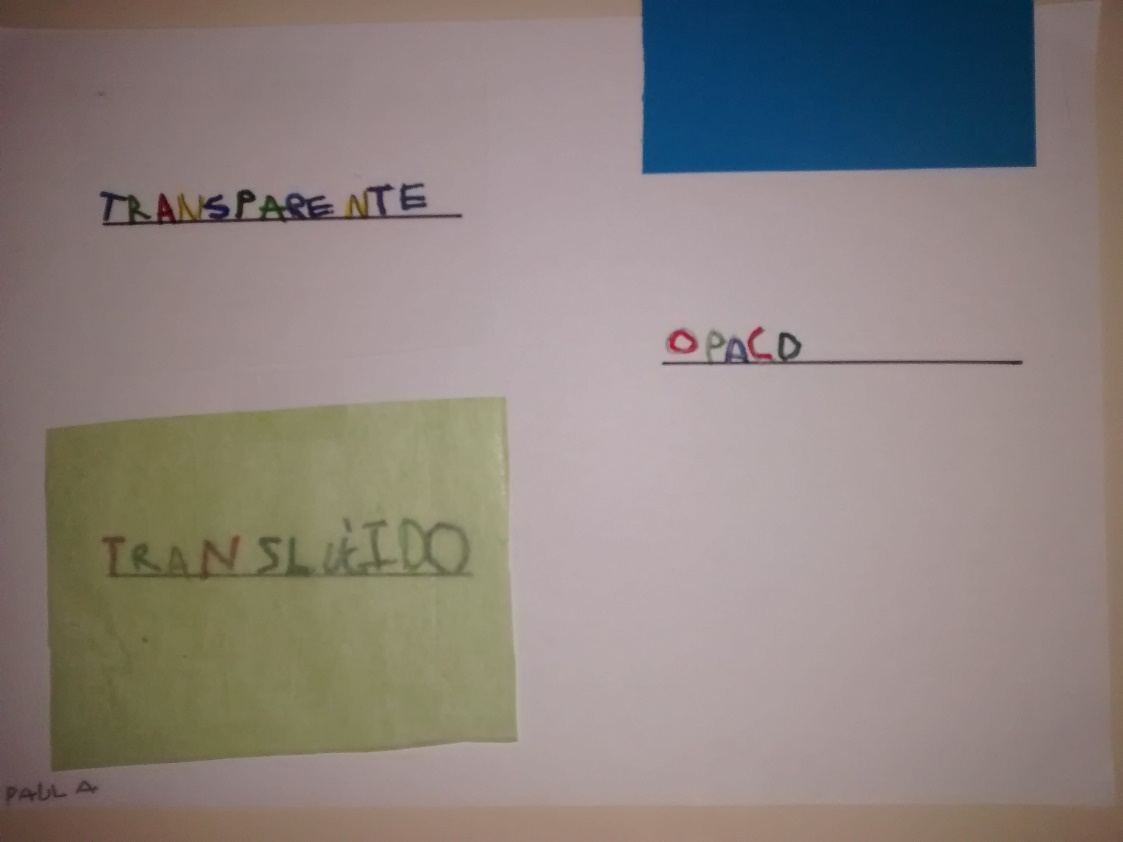 TRANSPARENTE
OPACO
TRANSLÚIDO
PAULA